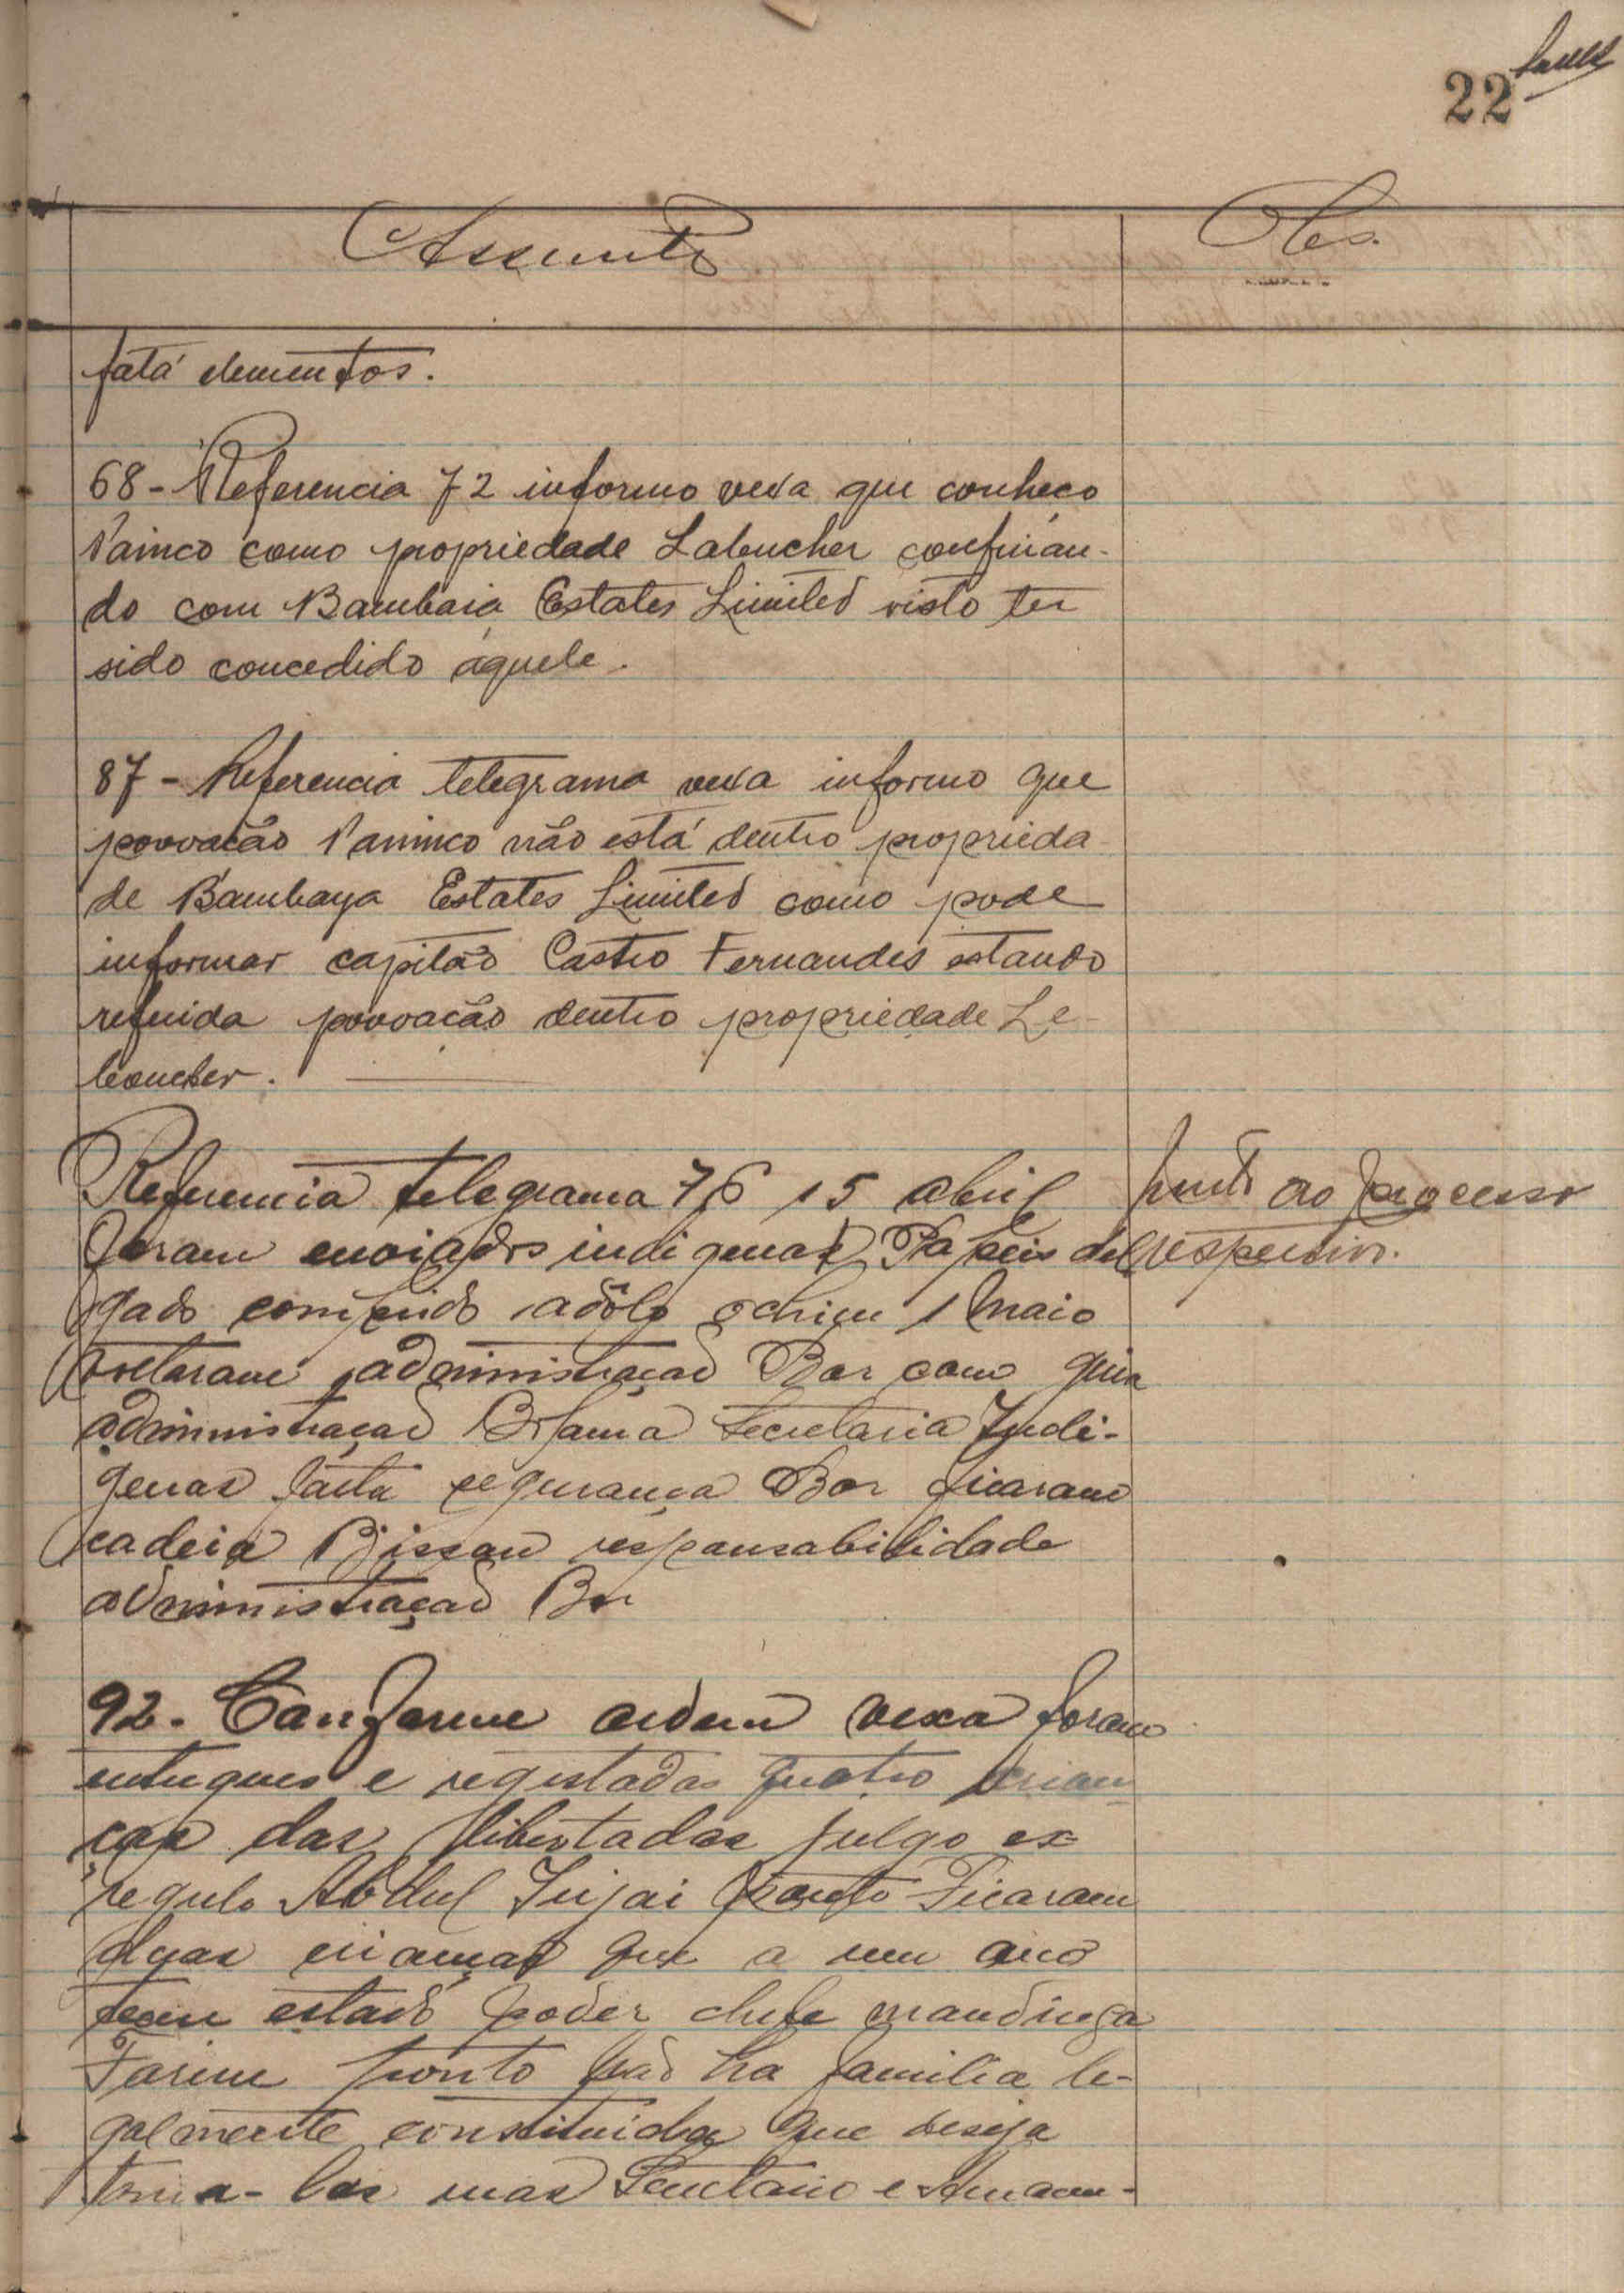 22
Assunto
Obs.
fatá elementos.
68 - Referencia 72 informo vexa que conheço
como propriedade Labucher confinan-
do com Bambaia Estates Limited visto ter
sido concedido áquele.
87 - Referencia telegrama vexa informo que
povoação não está dentro proprieda-
de Bambaya Estates Limited como pode
informar capitão Castro Fernandes estando
referida povoação dentro propriedade Le-
boucher.
Referencia telegrama 76 15 abril
foram enviados indigenas Papeis del
gado comprido 1 Maio
voltaram administração Bor com guia
administração Bolama Secretaria Indi-
genas falta segurança Bor ficaram
cadeia Bissau responsabilidade
administração Bor
Junto ao processo
respectivo.
92. Conforme ordem vexa foram
entregues e registadas quatro crian
ças das libertadas julgo ex-
regulo Abdul Injai ponto Ficaram
duas crianças que a um ano
teem estado poder chefe mandinga
Farim ponto Não ha familia le-
galmente constituida que deseja
toma-las mas Secretario e